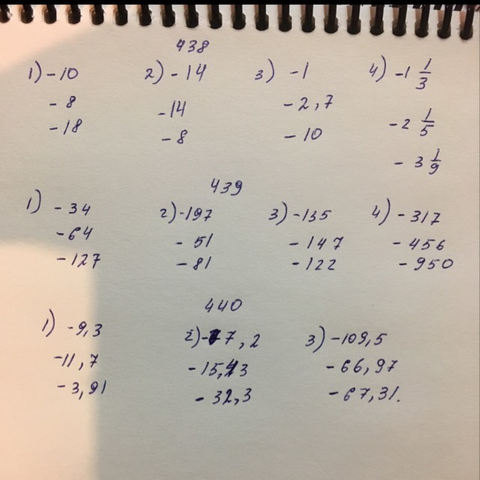 438
1) -10 2) -14 3) -1 4) -1 1/3
-8 -14 -2,7 -2 1/5
-18 -8 -10 -3 1/9
439
1) -34 2) -197 3) -135 4) -317
-64 -51 -147 -456
-127 -81 -122 -950
440
1) -9,3 2) -77,2 3) -109,5
-11,7 -15,43 -66,97
-3,91 -32,3 -67,31.